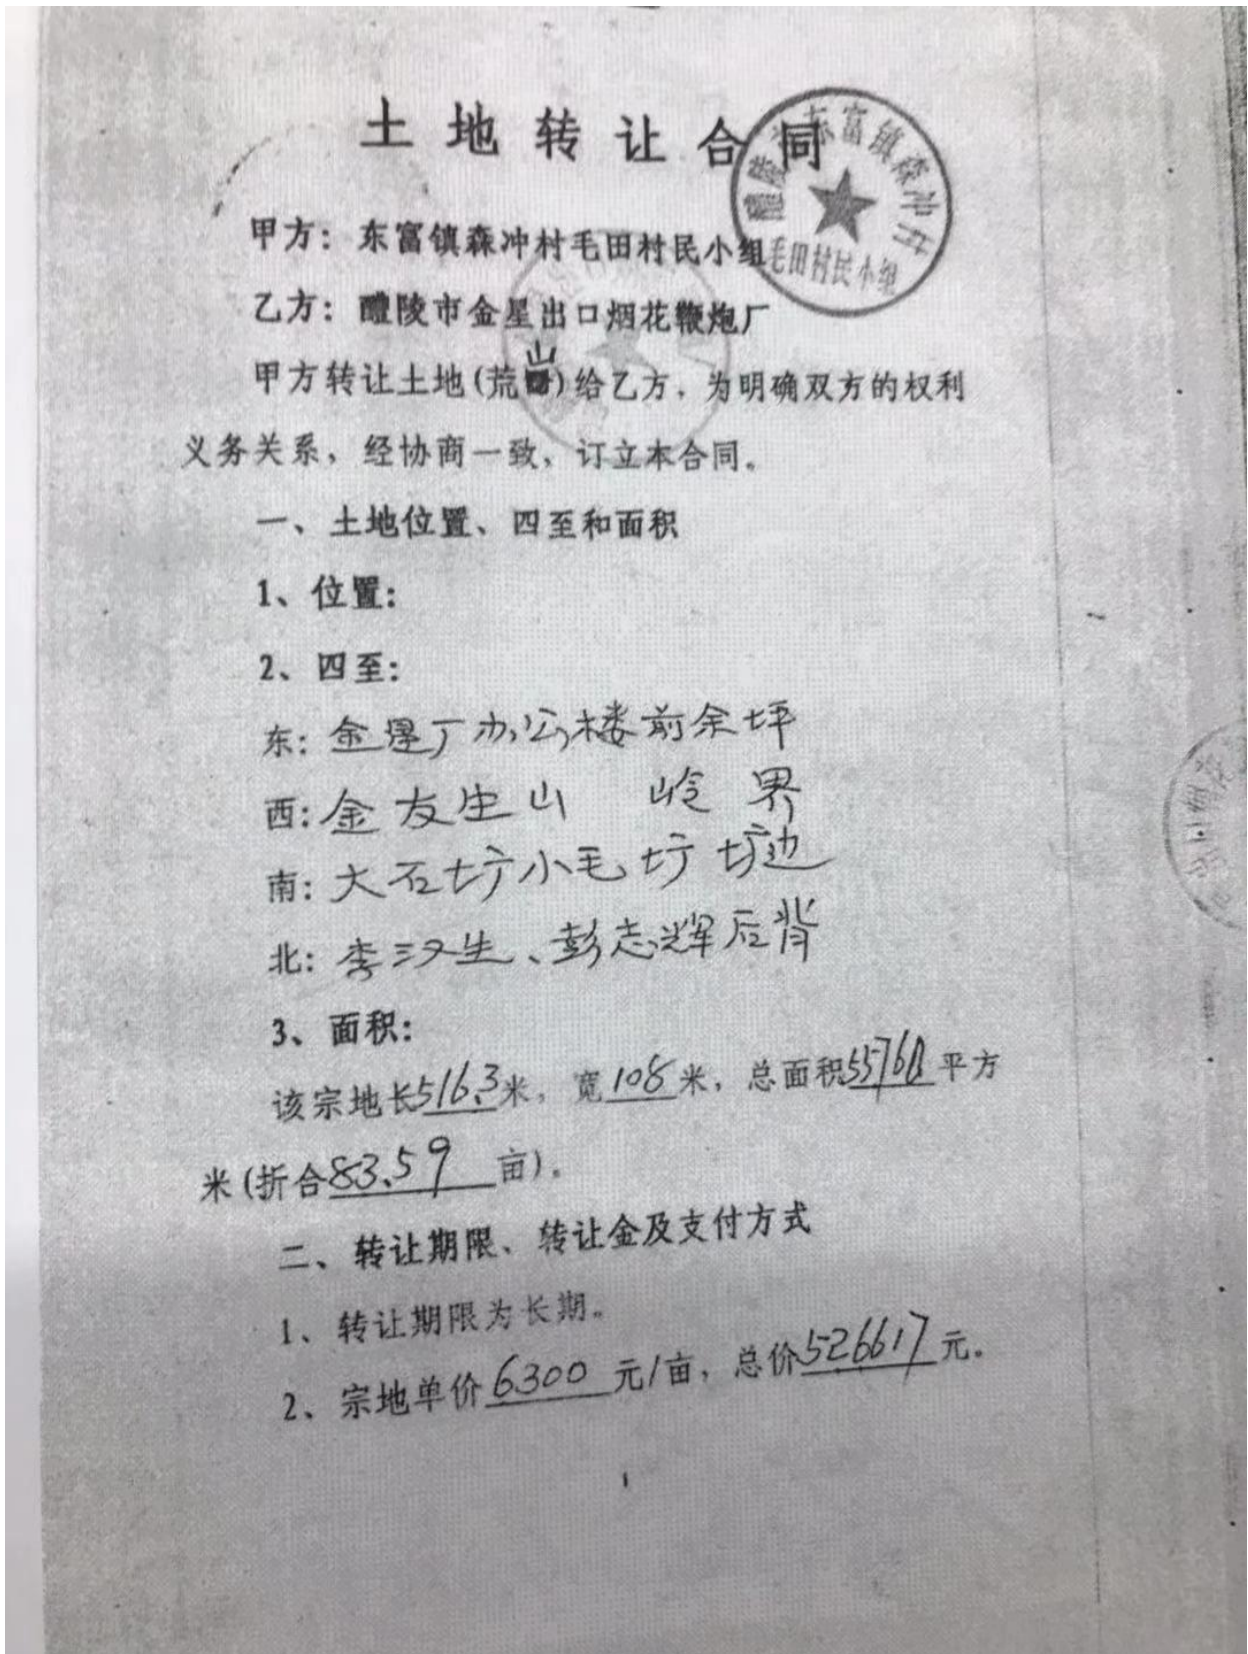 土地转让合同
醴陵市东富镇森冲村
毛田村民小组
甲方：东富镇森冲村毛田村民小组
乙方：醴陵市金星出口烟花鞭炮厂
甲方转让土地(荒山)给乙方，为明确双方的权利
义务关系，经协商一致，订立本合同。
一、土地位置、四至和面积
1、位置：
2、四至：
东：金星厂办公楼前余坪
西：金友生山 岭界
南：大石圹小毛圹圹边
北：李汉生、彭志辉后背
3、面积：
该宗地长516.3米，宽108米，总面积55760平方
米(折合83.59亩)。
二、转让期限、转让金及支付方式
1、转让期限为长期。
2、宗地单价6300元/亩，总价526617元。
1